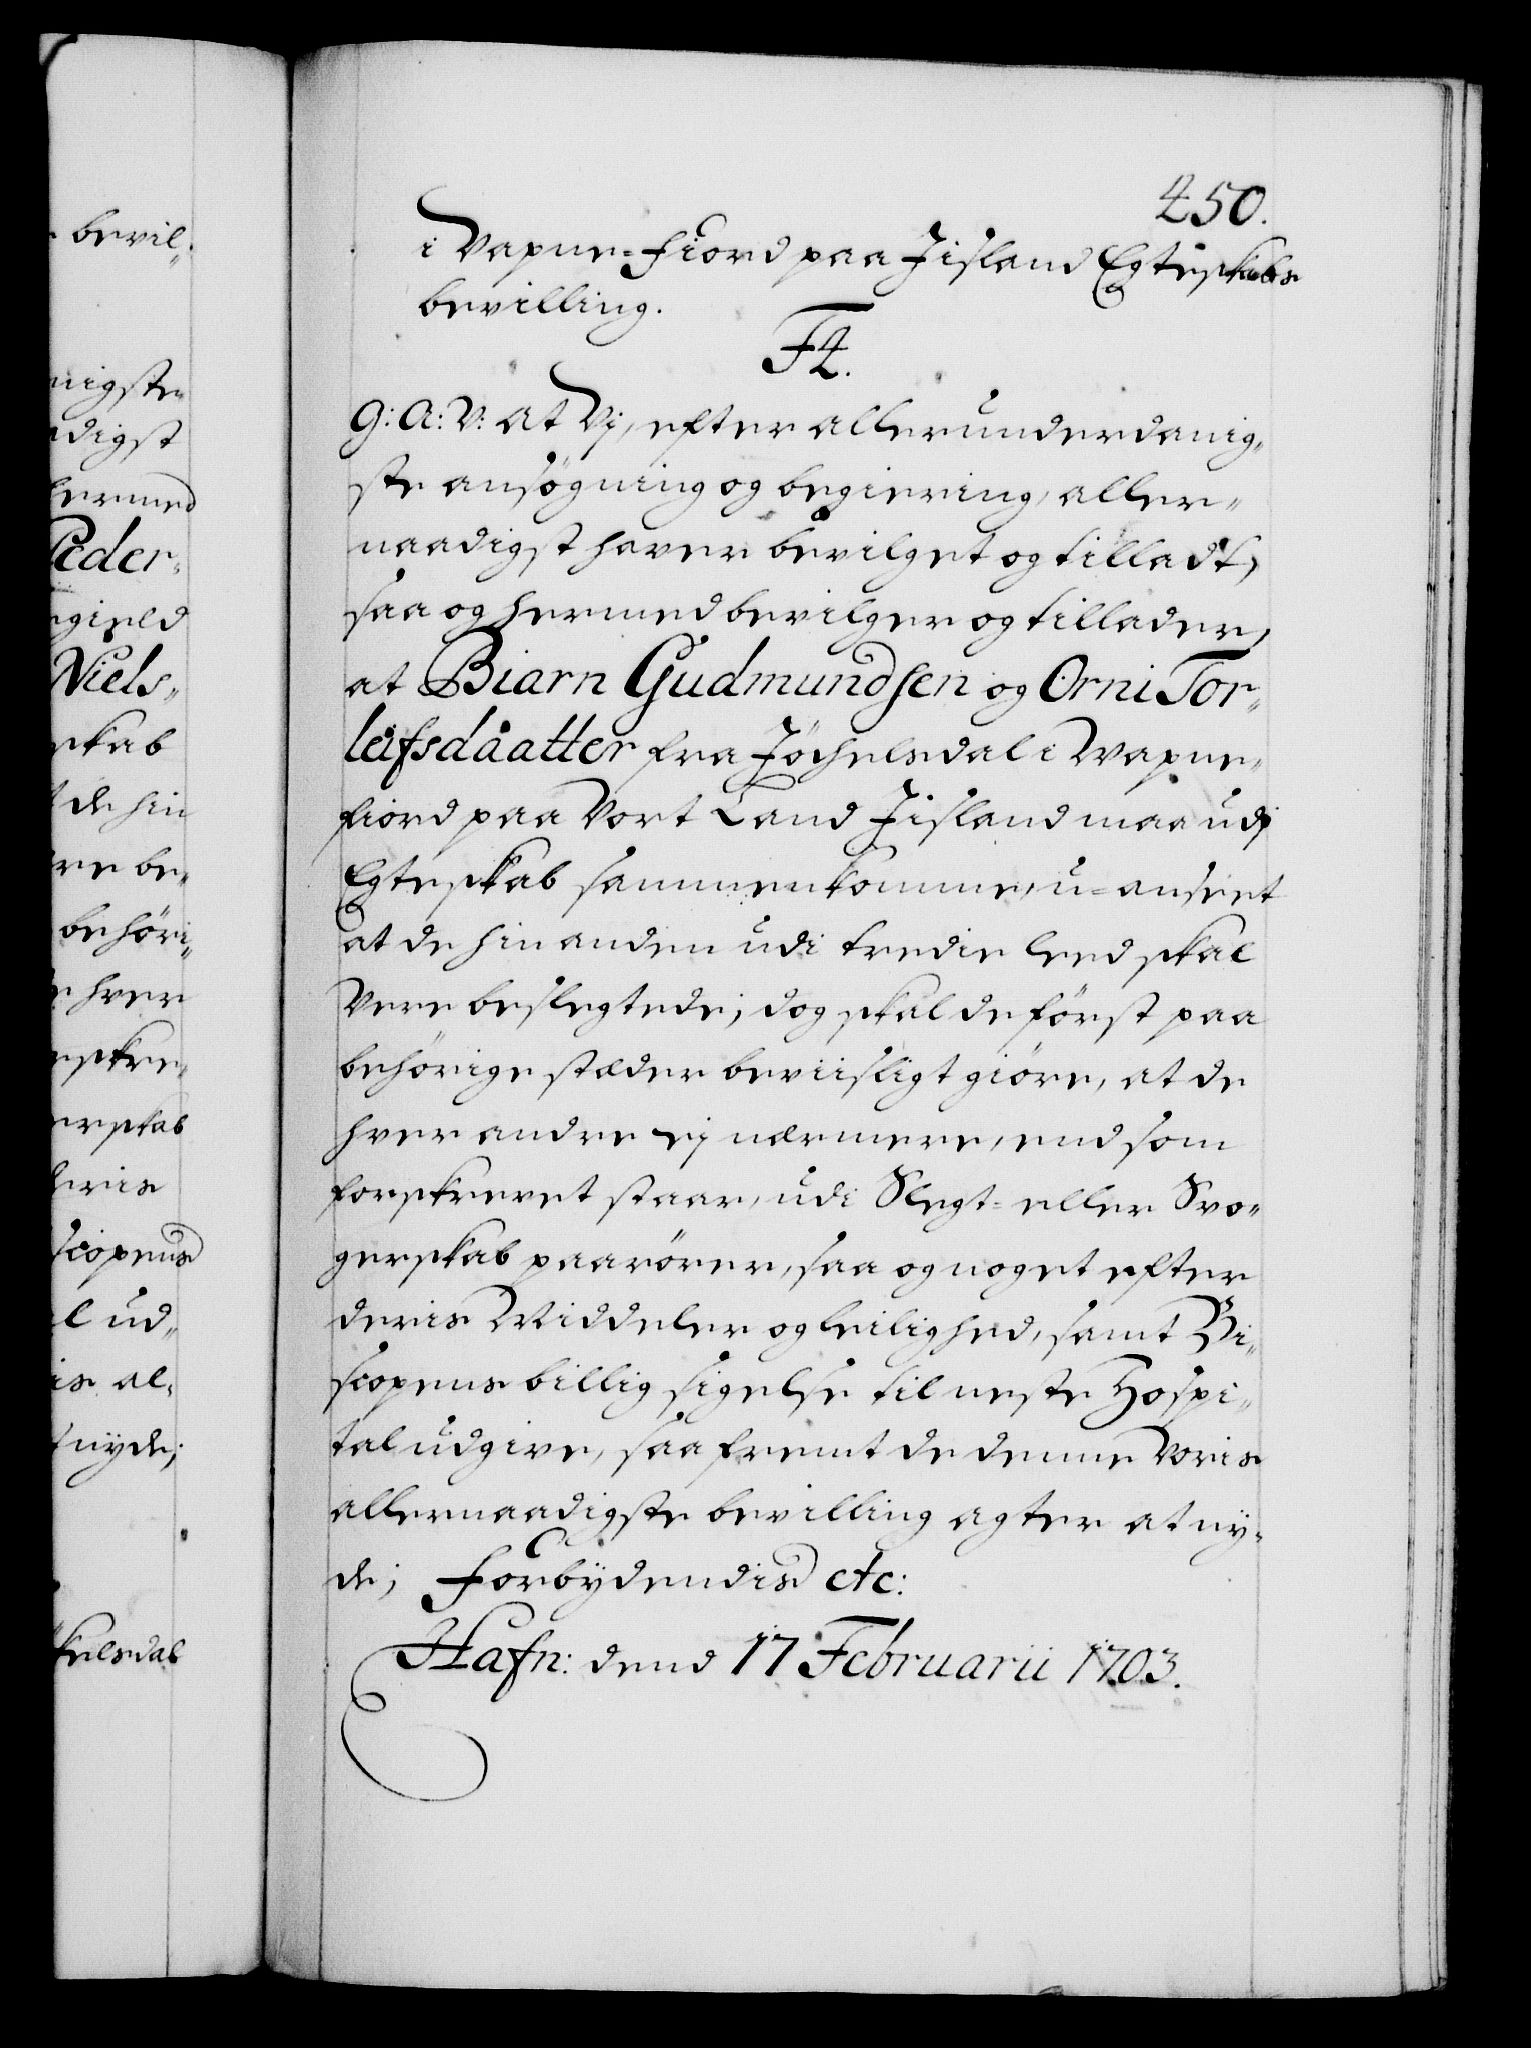 450.
i Vapne=Fiord paa Jisland Egteskabs
bevilling.
F4.
G: A: V: at Vj, efter allerunderdanig„
ste ansögning og begiering, aller„
naadigst haver bevilget og tilladt,
saa og hermed bevilger og tillader,
at Biarn Gudmundsen og Orni Tor„
leifsdaatter fra Jöchelsdal i Wapne„
fiord paa Vort Land Jisland maa udj
Egteskab sammenkomme, u=anseet
at de hinanden udi tredie leed skal
Vere beslegtede; dog skal de först paa
behörige stæder beviisligt giöre, at de
hver andre ej nærmere, end som
forskrevet staar, udi Slegt= eller Svo„
gerskab paarörer, saa og noget efter
deris Middeler og leilighed, samt Bi„
scopens billig sigelse til neste Hospi„
tal udgive, saa fremt de denne Voris
allernaadigste bevilling agter at ny„
de; Forbydendis etc:
Hafn: dend 17 Februarii 1703.
bevil„
nigste
adigst
hermed
Peder„
Niels„
skab
de hin
re be„
behöri„
hver
skre„
erskab
deris
scopens
l ud„
is al„
nyde;
kelsdal